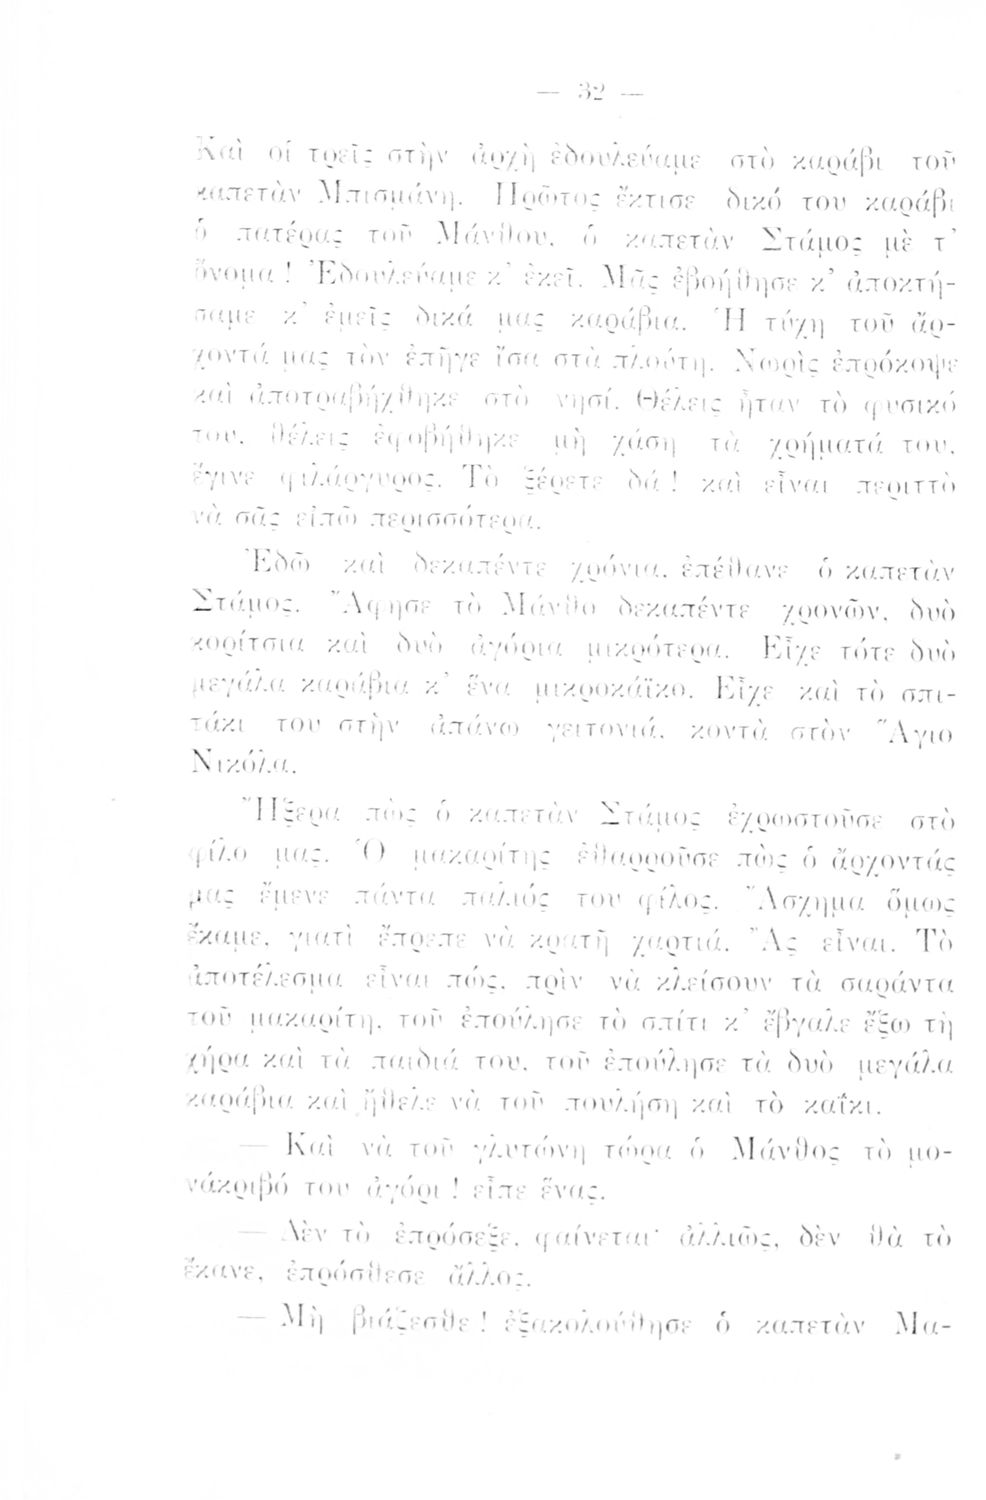 — 32 —
Καὶ οἱ τρεῖς στὴν ἀρχὴ ἐδουλεύαμε στὸ καράβι τοῦ
καπετὰν Μπισμάνη. Πρῶτος ἔκτισε δικό του καράβι
ὁ πατέρας τοῦ Μάνθου, ὁ καπετὰν Στάμος μὲ τ᾿
ὄνομα ! Ἐδουλεύαμε κ᾿ ἐκεῖ. Μᾶς ἐβοήθησε κ᾿ ἀποκτή-
σαμε κ᾿ ἐμεῖς δικά μας καράβια. Ἡ τύχη τοῦ ἄρ-
χοντά μας τὸν ἐπῆγε ἴσα στὰ πλούτη. Νωρὶς ἐπρόκοψε
καὶ ἀποτραβήχθηκε στὸ νησί. Θέλεις ἦταν τὸ φυσικό
του, θέλεις ἐφοβήθηκε μὴ χάση τὰ χρήματά του,
ἔγινε φιλάργυρος. Τὸ ξέρετε δά ! καὶ εἶναι περιττὸ
νὰ σᾶς εἰπῶ περισσότερα.
Ἐδῶ καὶ δεκαπέντε χρόνια, ἐπέθανε ὁ καπετὰν
Στάμος. Ἄφησε τὸ Μάνθο δεκαπέντε χρονῶν, δυὸ
κορίτσια καὶ δυὸ ἀγόρια μικρότερα. Εἶχε τότε δυὸ
μεγάλα καράβια κ᾿ ἕνα μικροκάϊκο. Εἶχε καὶ τὸ σπι-
τάκι του στὴν ἀπάνω γειτονιά, κοντὰ στὸν Ἅγιο
Νικόλα.
Ἤξερα πὼς ὁ καπετὰν Στάμος ἐχρωστοῦσε στὸ
φίλο μας. Ὁ μακαρίτης ἐθαρροῦσε πὼς ὁ ἄρχοντάς
μας ἔμενε πάντα παλιός του φίλος. Ἄσχημα ὅμως
ἔκαμε, γιατὶ ἔπρεπε νὰ κρατῆ χαρτιά. Ἂς εἶναι. Τὸ
ἀποτέλεσμα εἶναι πώς, πρὶν νὰ κλείσουν τὰ σαράντα
τοῦ μακαρίτη, τοῦ ἐπούλησε τὸ σπίτι κ᾿ ἔβγαλε ἔξω τὴ
χήρα καὶ τὰ παιδιά του, τοῦ ἐπούλησε τὰ δυὸ μεγάλα
καράβια καὶ ἤθελε νὰ τοῦ πουλήση καὶ τὸ καΐκι.
— Καὶ νὰ τοῦ γλυτώνη τώρα ὁ Μάνθος τὸ μο-
νάκριβό του ἀγόρι ! εἶπε ἕνας.
— Δὲν τὸ ἐπρόσεξε, φαίνεται· ἀλλιῶς, δὲν θὰ τὸ
ἔκανε, ἐπρόσθεσε ἄλλος.
— Μὴ βιάζεσθε ! ἐξακολούθησε ὁ καπετὰν Μα-